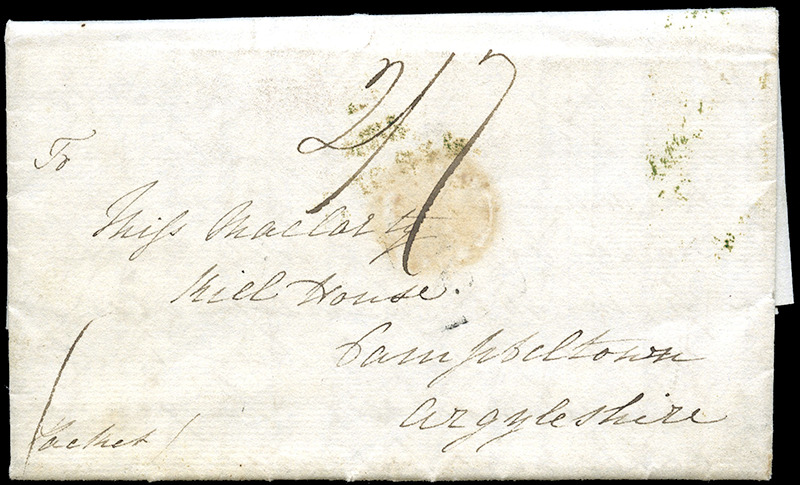 2/7
To
Miss Maclarty
Kiel House.
Campbeltown
Argyleshire
Packet